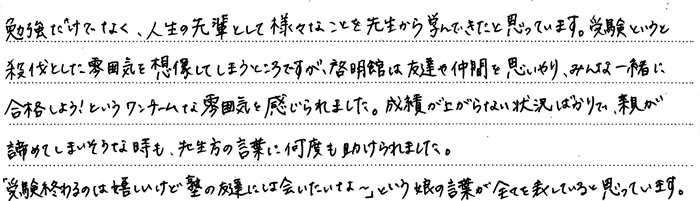 勉強だけでなく、人生の先輩として様々なことを先生から学んできたと思っています。受験というと
殺伐とした雰囲気を想像してしまうところですが、啓明館は友達や仲間を思いやり、みんな一緒に
合格しよう!というワンチームな雰囲気を感じられました。成績が上がらない状況ばかりで、親が
諦めてしまいそうな時も、先生方の言葉に何度も助けられました。
「受験終わるのは嬉しいけど塾の友達には会いたいな～」という娘の言葉が全てを表していると思っています。